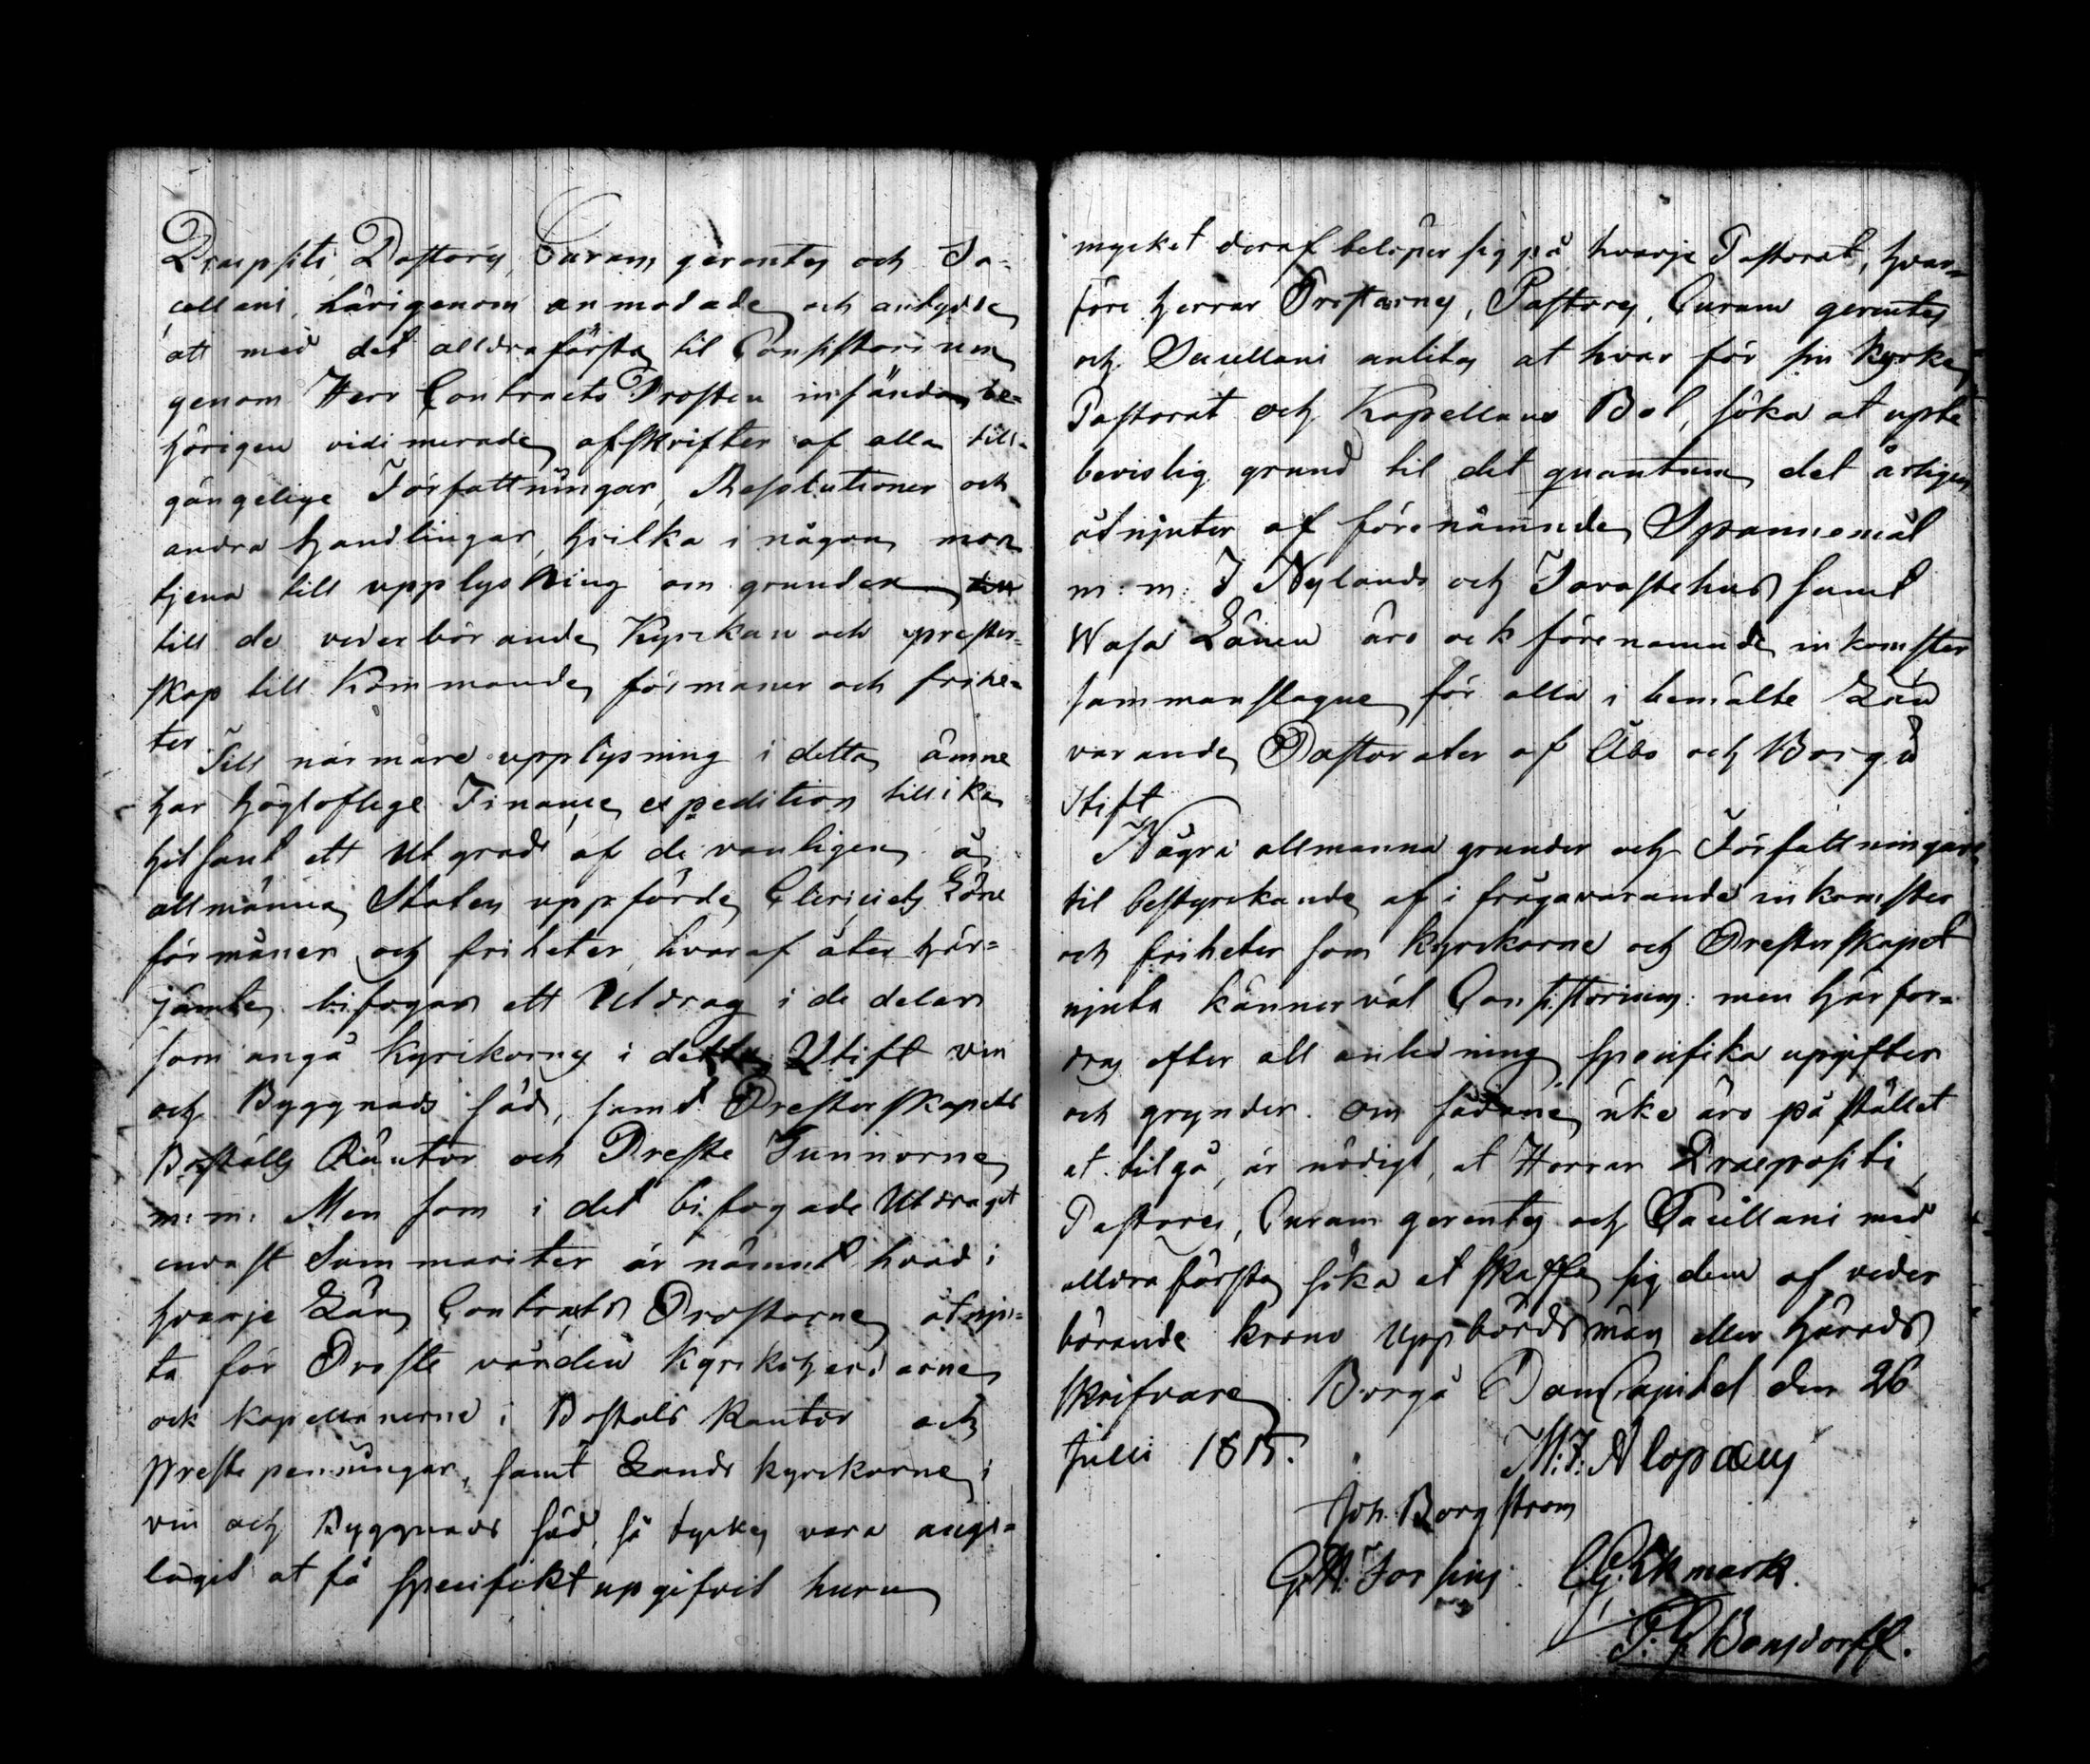 Præpsiti, Pastores, Curam gerentes och Sa-
cellani, härigenom anmodade och antydde
att med det alldraförsta til Consistorium
genom Herr Contracts Prosten insända be-
hörigen vidimerade afskrifter af alla till-
gängelige Författningar, Resolutioner och
andra handlingar, hvilka i någon mon
tjena till upplysning om grunden
till de vederbörande Kyrckan och prester-
skap till kommande förmåner och frihe-
ter
Till närmare upplysning i detta ämne
har högloflige Finance expedition tillika
hitsänt ett Utgrad af de vanligen å
allmänna Staten uppförde Clericiets Löne
förmåner och friheter, hvaraf åter här-
jämte bifogas ett Utdrag i de delar
som angå Kyrkorne i detta Stift vin
och Byggnads säd, samt Presterskapets
Boställs Räntor och Preste Tunnorne
m: m: Men som i det bifogade Utdraget
endast Summariter är nämnt hvad i
hvarje Län Contracts Prostarne åtnju-
ta för Proste värden Kyrkoherdarne
ock kapellanerne i Bostäls Räntor och
preste penningar, samt Lands kyrckorne i
vin och Byggnads säd, så tyckes vara ange-
lägit at få specifikt upgifvit huru
mycket deraf belöper sig på hvarje Pastorat, hvar-
före herrar Prostarne, Pastores, Curam gerentes
och Sacellani anlitas at hvar för sin Kyrka
Pastorat och Kapellans Bol, söka at upte
bevislig grund til det quantum det årligen
åtnjuter af förenämnde Spannemål
m: m: I Nylands och Tavastehus samt
Wasa Länen äro ock förenämnde inkomster
sammanslagne för alla i bemälte Län
varande Pastorater af Åbo och Borgå
Stift
Några allmänna grunder och Författningar
til bestyrckande af i frågavarande inkomster
och friheter som kyrckorne och Presterskapet
njuta känner väl Consistorium: men härfor-
dras efter all anledning specifika upgifter
och grunder. Om sådane icke äro på stället
at tilgå, är nödigt, at Herrar Præpositi,
Pastores, Curam gerentes och Sacellani med
alldraförsta söka at skaffa sig dem af veder
börande krono Uppbördsmän eller härads
skrifvare. Borgå DomCapitel den 26
Julii 1815.
M: J: Alopæus
Joh. Borgstrom
G: A: Forsius. C. G. Ekmark.
P. G. Bonsdorff.